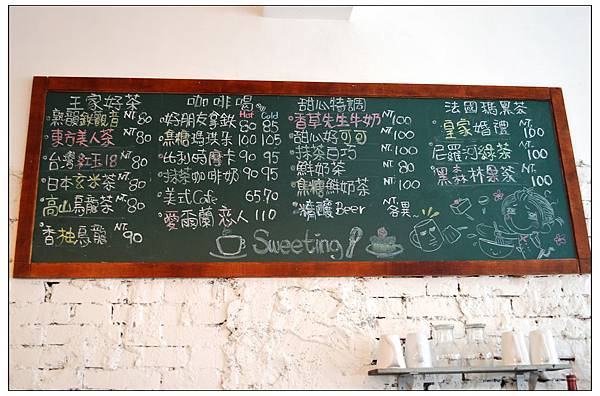 王家好茶
熟韻鐵觀音 NT 80
東方美人茶 NT 80
台灣紅玉18 NT 80
日本玄米茶 NT 80
高山烏龍茶 NT 80
香柚烏龍 NT 90
咖啡喝
Hot Cold
好朋友拿鉄 80 85
焦糖瑪琪朵 100 105
比利時摩卡 90 95
抹茶咖啡奶 90 95
美式Cafe 65.70
愛爾蘭戀人 110
甜心特調
香草先生牛奶 NT 100
甜心好可可 NT 100
抹茶白巧 NT 100
鮮奶茶 NT 80
焦糖鮮奶茶 NT 100
精釀Beer NT 各異
法國瑪黑茶
皇家婚禮 NT 100
尼羅河綠茶 NT 100
黑森林果茶 NT 100
Sweeting